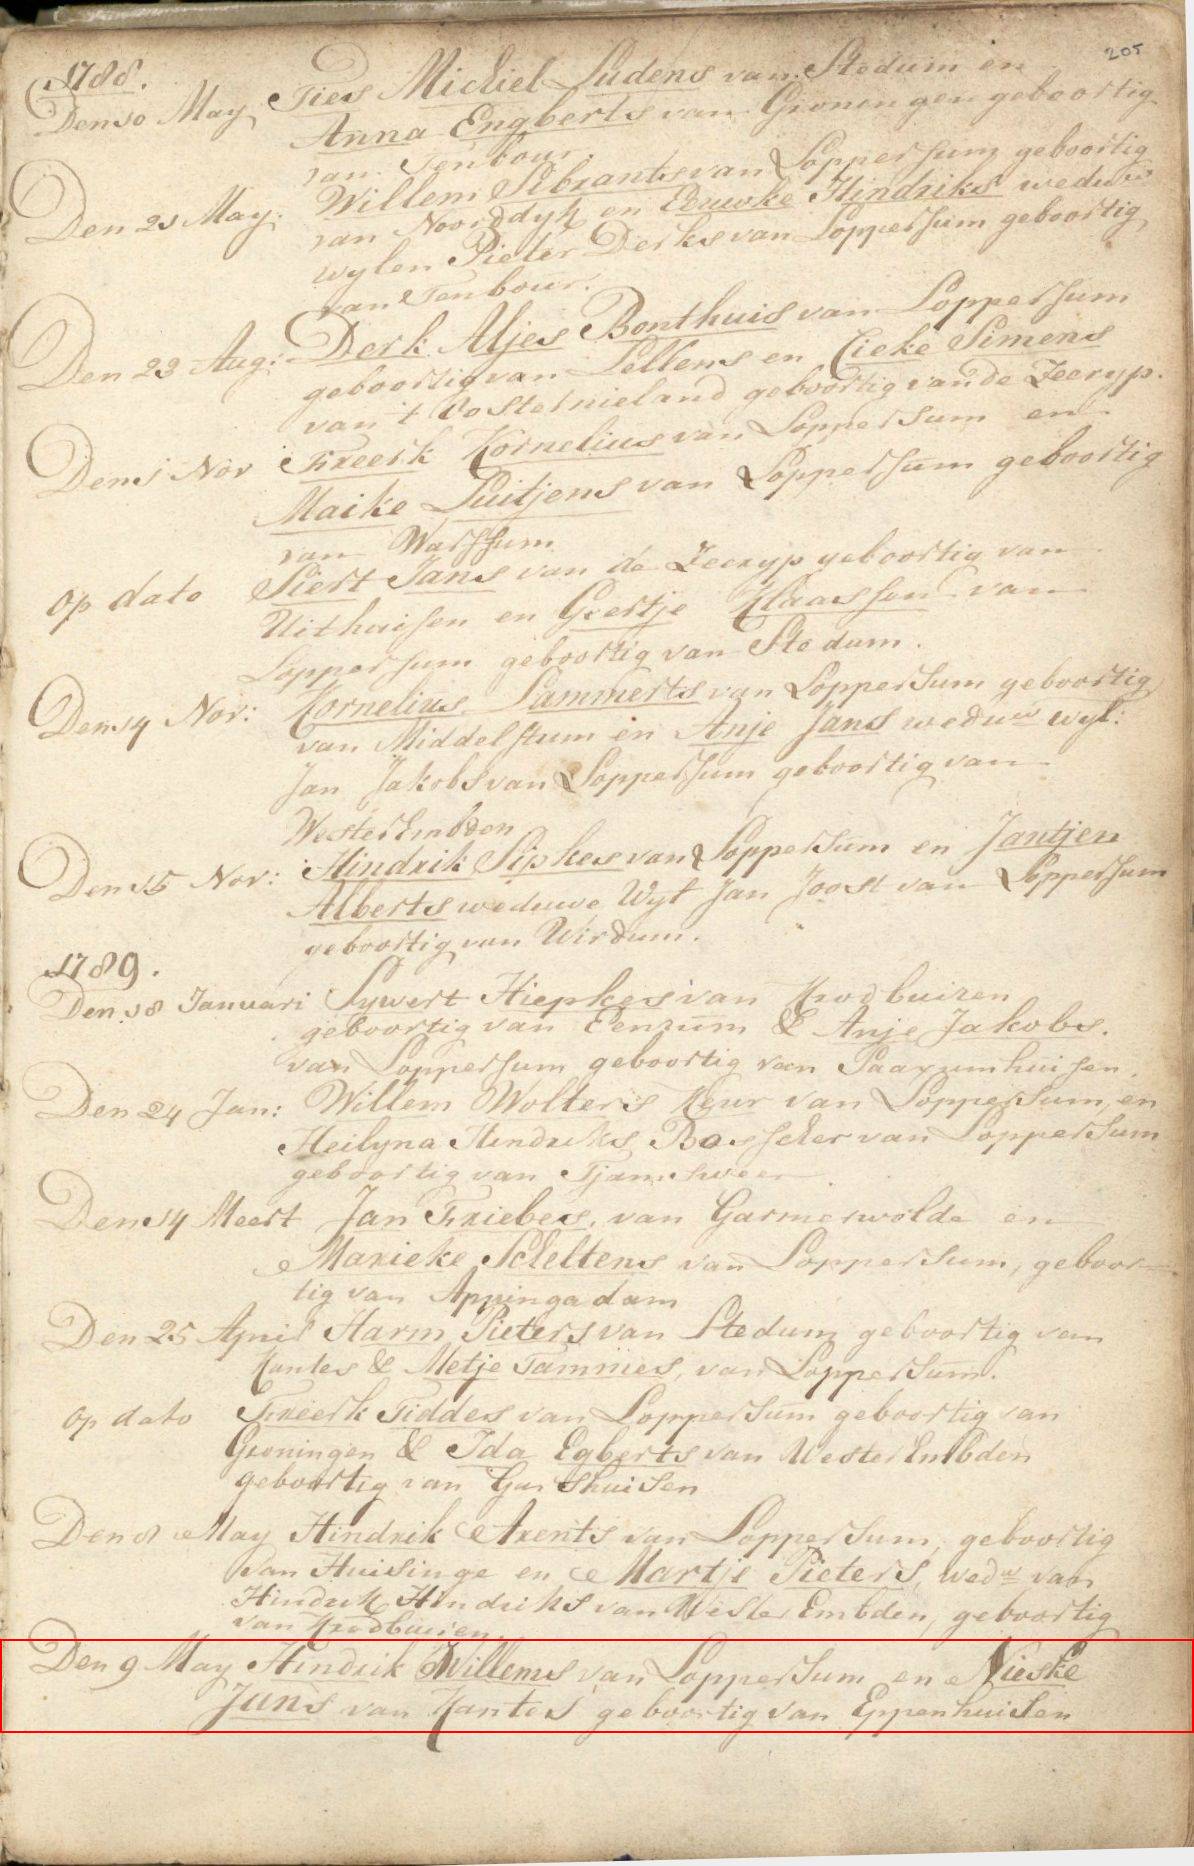 205
1788.
Den 10 May, Ties Michiel Ludens van Stedum en
Anna Engberts van Gronengen geboortig
van Tenbour.
Den 21 May: Willem Sibrants van Loppersum geboortig
van Noorddyk en Eeuwke Hindriks weduwe
wylen Pieter Derks van Loppersum geboortig
van Tenbour.
Den 23 Aug: Derk Aljes Bonthuis van Loppersum
geboortig van Lellens en Cieke Simens
van 't Oosternieland geboortig van de Zeeryp.
Den 1 Nov Freerk Kornelius van Loppersum en
Maike Luitjens van Loppersum geboortig
van Warffum
op dato Siert Jans van de Zeeryp geboortig van
Uithuisen en Geertje Klaassen van
Loppersum geboortig van Stedum.
Den 14 Nov: Kornelius Lammerts van Loppersum geboortig
van Middelstum en Anje Jans weduwe wyl:
Jan Jakobs van Loppersum geboortig van
WesterEmbden
Den 15 Nov: Hindrik Sipkes van Loppersum en Jantjen
Alberts weduwe Wyl Jan Joost van Loppersum
geboortig van Wirdum.
1789.
Den 18 Januari Sywert Hiepkes van Krodbuiren
geboortig van Eenrum & Anje Jakobs.
van Loppersum geboortig van Saaxumhuisen.
Den 24 Jan: Willem Wolters Keur van Loppersum, en
Heilyna Hindriks Bosscher van Loppersum
geboortig van Tjamsweer.
Den 14 Meert Jan Friebes, van Garmerwolde en
Marieke Scheltens van Loppersum, geboor-
tig van Appingadam
Den 25 April Harm Pieters van Stedum geboortig van
Kantes & Metje Tammes, van Loppersum.
op dato Freerk Tiddes van Loppersum geboortig van
Groningen & Ida Egberts van WesterEmbden
geboortig van Garshuisen
Den 8 May Hindrik Arents van Loppersum, geboortig
van Huisinge en Martje Pieters, wedw van
Hindrik Hindriks van WesterEmbden, geboortig
van Krodbuiren.
Den 9 May Hindrik Willems van Loppersum en Nieske
Jans van Kantes geboortig van Eppenhuisen